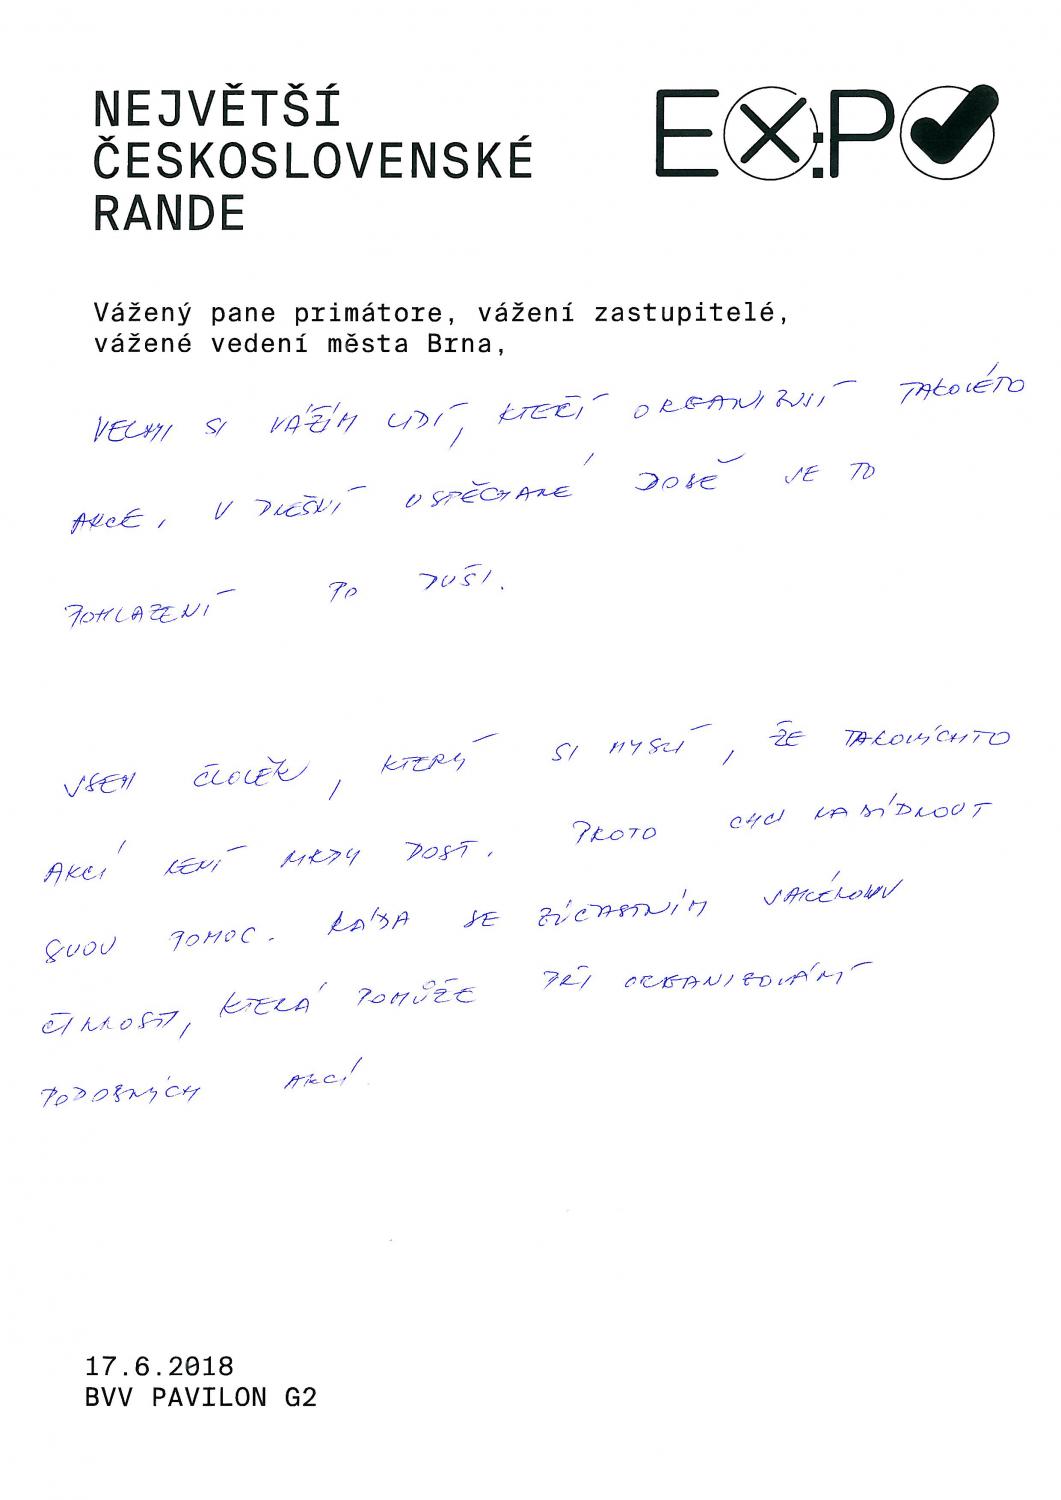 NEJVĚTŠÍ
ČESKOSLOVENSKÉ
RANDE
EX:PO
Vážený pane primátore, vážení zastupitelé,
vážené vedení města Brna,
VELMI SI VÁŽÍM LIDÍ, KTEŘÍ ORGANIZUJÍ TAKOVÉTO
AKCE, V DNEŠNÍ USPĚCHANÉ DOBĚ JE TO
POHLAZENÍ PO DUŠI.
JSEM ČLOVĚK, KTERÝ SI MYSLÍ, ŽE TAKOVÝCHTO
AKCÍ NENÍ NIKDY DOST. PROTO CHCI NABÍDNOUT
SVOU POMOC. RÁDA SE ZÚČASTNÍM JAKÉKOLIV
ČINNOSTI, KTERÁ POMŮŽE PŘI ORGANIZOVÁNÍ
PODOBNÝCH AKCÍ
17.6.2018
BVV PAVILON G2